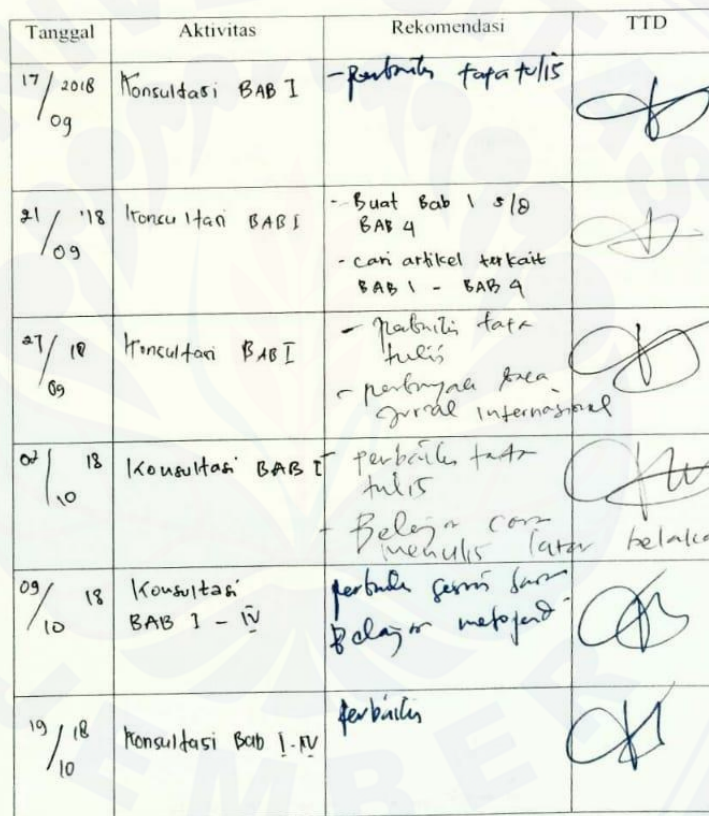 Tanggal Aktivitas Rekomendasi TTD
17/09 2018 Konsultasi BAB I - perbaiki tata tulis
21/09 '18 Konsultasi BAB I - Buat Bab 1 s/d
BAB 4
- cari artikel terkait
BAB 1 - BAB 4
27/09 18 Konsultasi BAB I - perbaiki tata
tulis
- perbanyak baca
jurnal internasional
02/10 18 Konsultasi BAB I - perbaiki tata
tulis
- Belajar cara
menulis latar belaka
09/10 18 Konsultasi perbaiki sesuai saran
BAB I - IV Belajar
19/10 18 Konsultasi Bab I - IV perbaiki
JEMBER